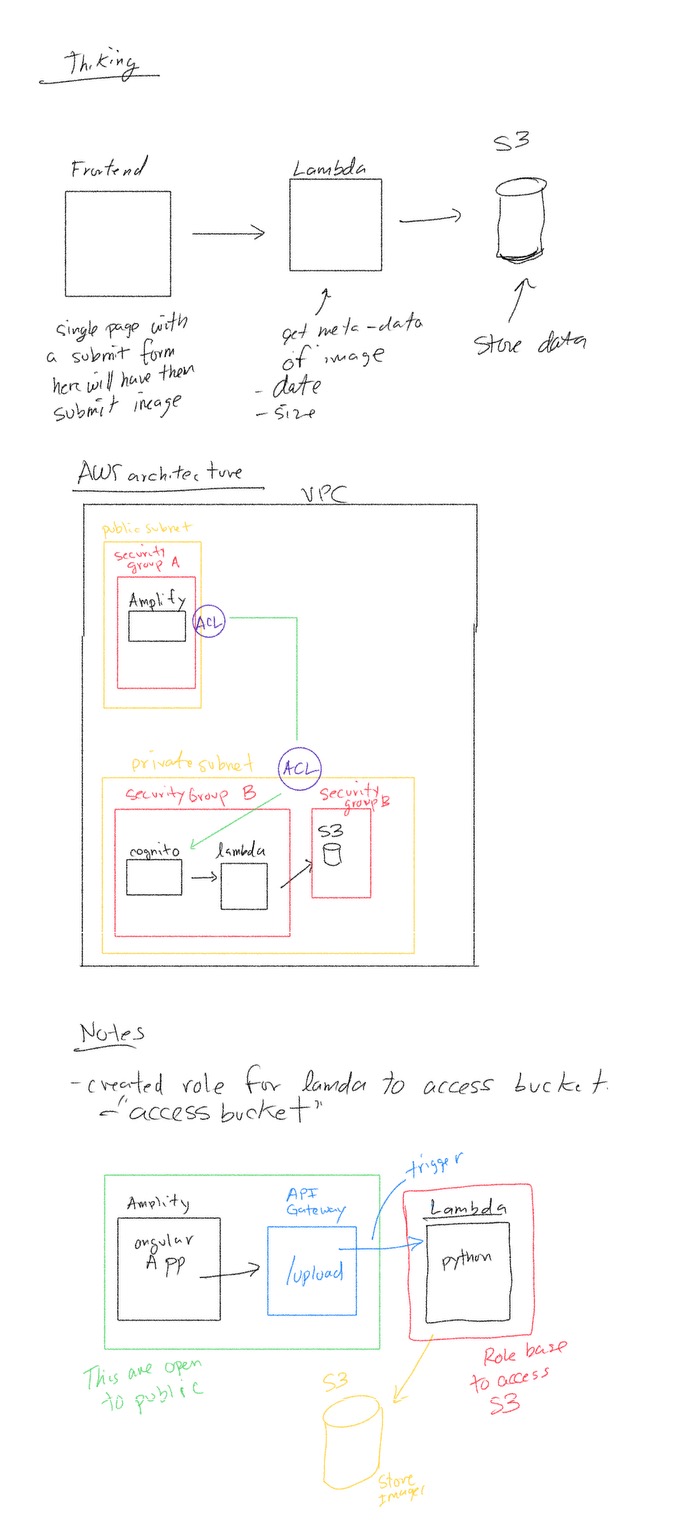 Thiking
Frontend
Lambda
S3
single page with
a submit form
here will have them
submit image
get meta-data
of image
- date
- size
store data
AWS architecture
VPC
public subnet
security
group A
Amplify
ACL
private subnet
ACL
security Group B
security
group B
cognito
lambda
S3
Notes
- created role for lamda to access bucket.
- "access bucket"
trigger
Amplity
API
Gateway
Lambda
angular
App
/upload
python
This are open
to public
Role base
to access
S3
S3
store
Images